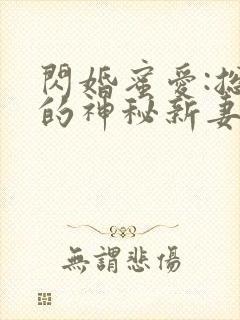 閃婚蜜愛:總
的神秘新妻
無謂悲傷